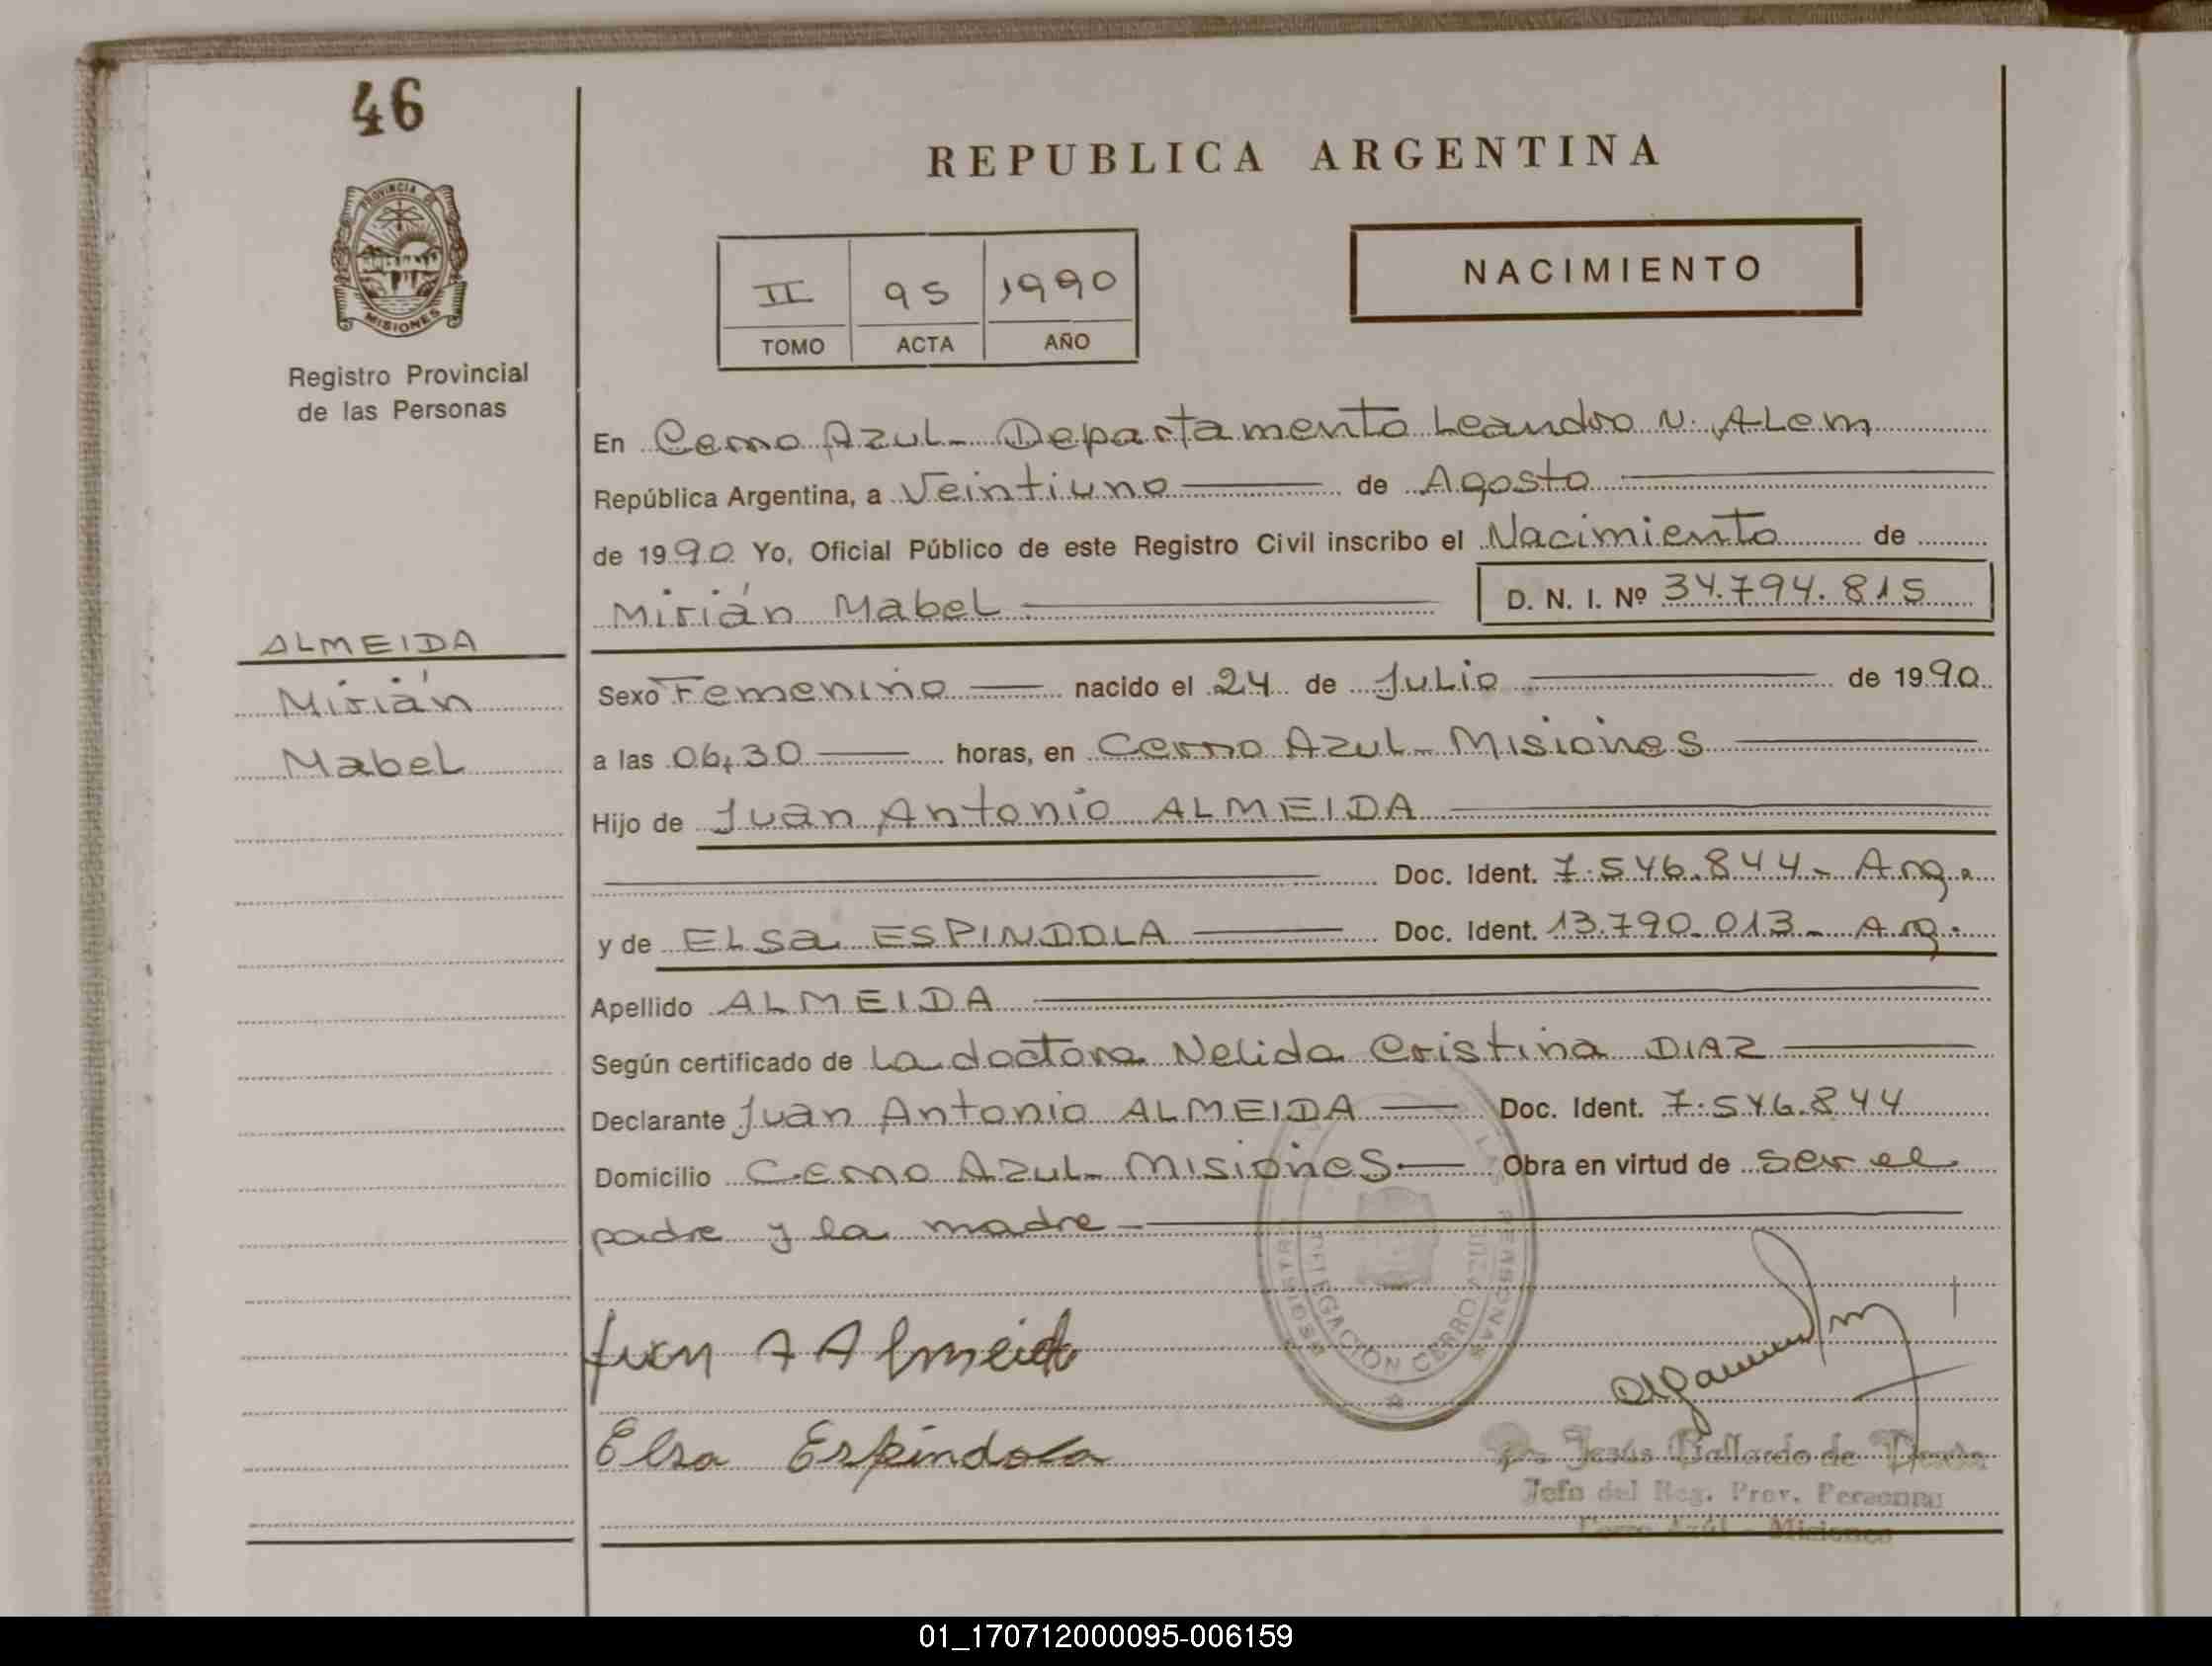 46
PROVINCIA DE
MISIONES
Registro Provincial
de las Personas
ALMEIDA
Mirián
Mabel
REPUBLICA ARGENTINA
II 95 1990
TOMO ACTA AÑO
NACIMIENTO
En Cerro Azul - Departamento Leandro N. Alem
República Argentina, a Veintiuno de Agosto
de 1990 Yo, Oficial Público de este Registro Civil inscribo el Nacimiento de
Mirián Mabel D. N. I. Nº 34.794.815
Sexo Femenino nacido el 24 de Julio de 1990
a las 06,30 horas, en Cerro Azul - Misiones
Hijo de Juan Antonio ALMEIDA
Doc. Ident. 7.546.844 - Arg.
y de Elsa ESPINDOLA Doc. Ident. 13.790.013 - Arg.
Apellido ALMEIDA
Según certificado de la doctora Nelida Cristina DIAZ
Declarante Juan Antonio ALMEIDA Doc. Ident. 7.546.844
Domicilio Cerro Azul - Misiones Obra en virtud de ser el
padre y la madre
DELEGACION CERRO AZUL
LAS PERSONAS
Juan A Almeida
Elsa Espindola
Jesús Gallardo de
Jefe del Reg. Prov. Personas
Cerro Azúl - Misiones
01_170712000095-006159